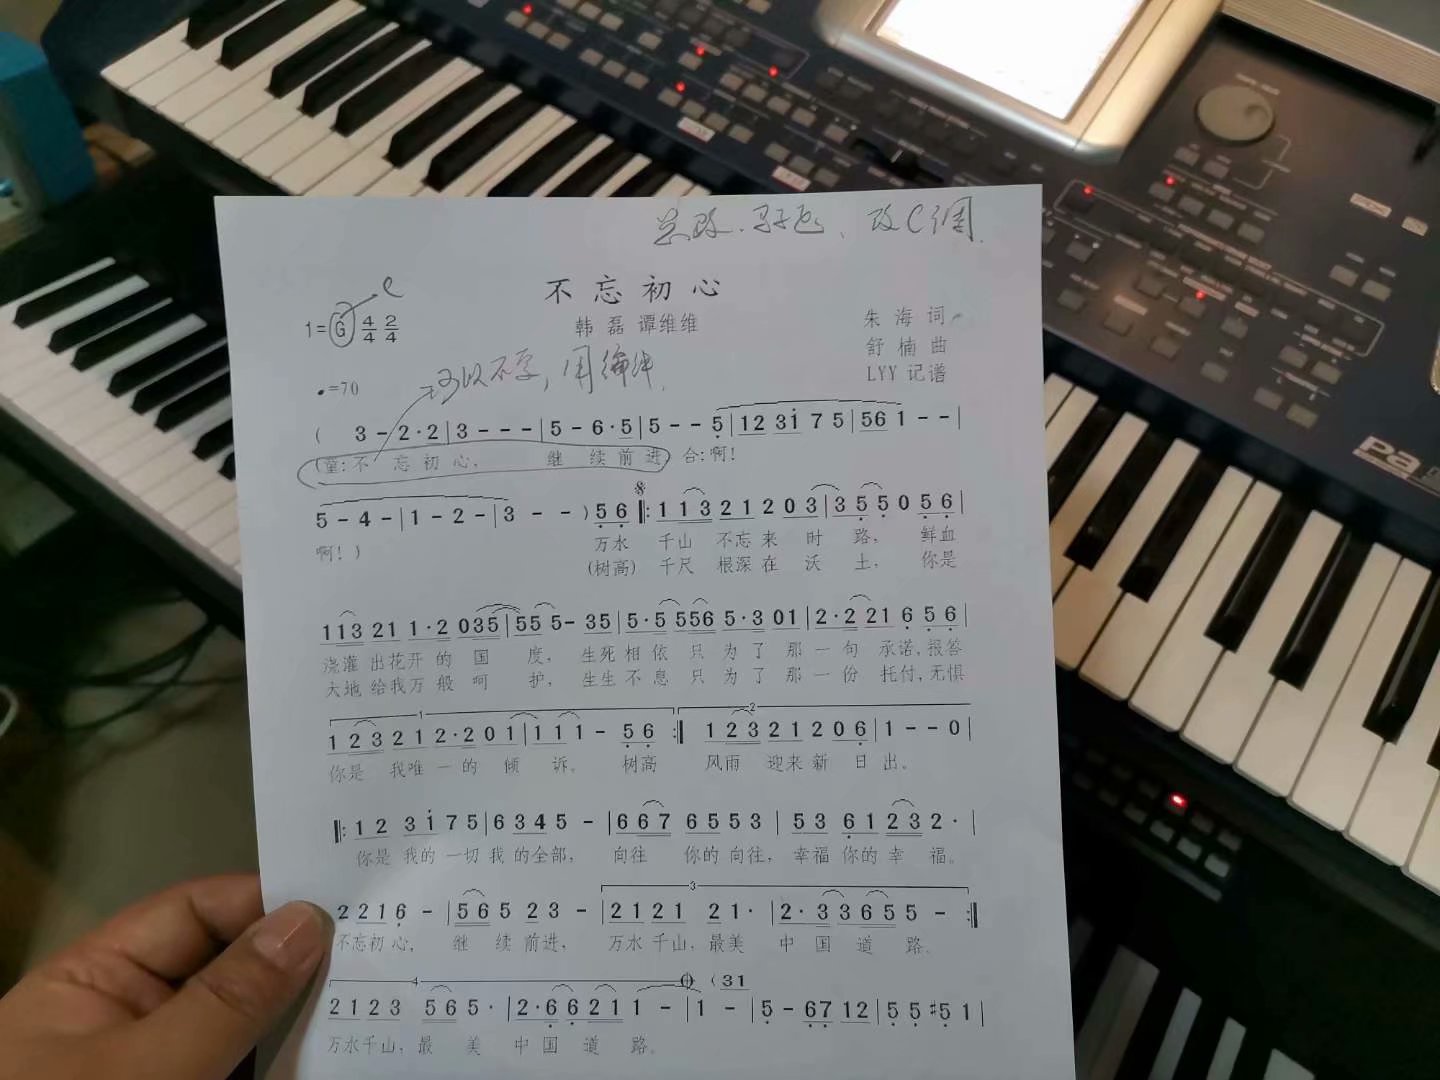 改C调
不忘初心
C
1=G 4/4 2/4
韩磊 谭维维
朱海词
舒楠曲
LYY 记谱
=70
可以不录,用
( 3 - 2·2|3 - - -|5 - 6·5|5 - - 5|12 3i 7 5|561 - -|
(童:不 忘 初 心, 继 续 前 进 合:啊!
5 - 4 -|1 - 2 -|3 - - )56 ‖:113 21 20 3|35·50 56|
啊!)
万水 千山 不忘来 时 路, 鲜血
(树高) 千尺 根深在 沃 土, 你是
113 21 1·2 035|55 5- 35|5·5 556 5·3 01|2·2 21 6 56|
浇灌 出花开 的 国 度, 生死相依 只 为 了 那 一 句 承诺,报答
大地 给我万 般 呵 护, 生生不息 只 为 了 那 一 份 托付,无惧
1 2
123 21 2·2 01|11 1 - 56 :‖ 123 21 20 6|1 - - 0|
你是 我唯 一的 倾 诉。 树高 风雨 迎来 新 日 出。
‖:12 3i 75|6 34 5 -|667 65 53|53 61 23 2·|
你是 我的 一切 我 的全部, 向往 你的 向往, 幸福 你的 幸 福。
3
2216 -|56 5 23 -|2121 21·|2·3 365 5 - :‖
不忘初心, 继 续 前进, 万水千山,最美 中 国 道 路。
4 (31
2123 565·|2·66 21 1 -|1 -|5 - 67 12|5 5 #5 1|
万水千山, 最 美 中 国 道 路。
Pa